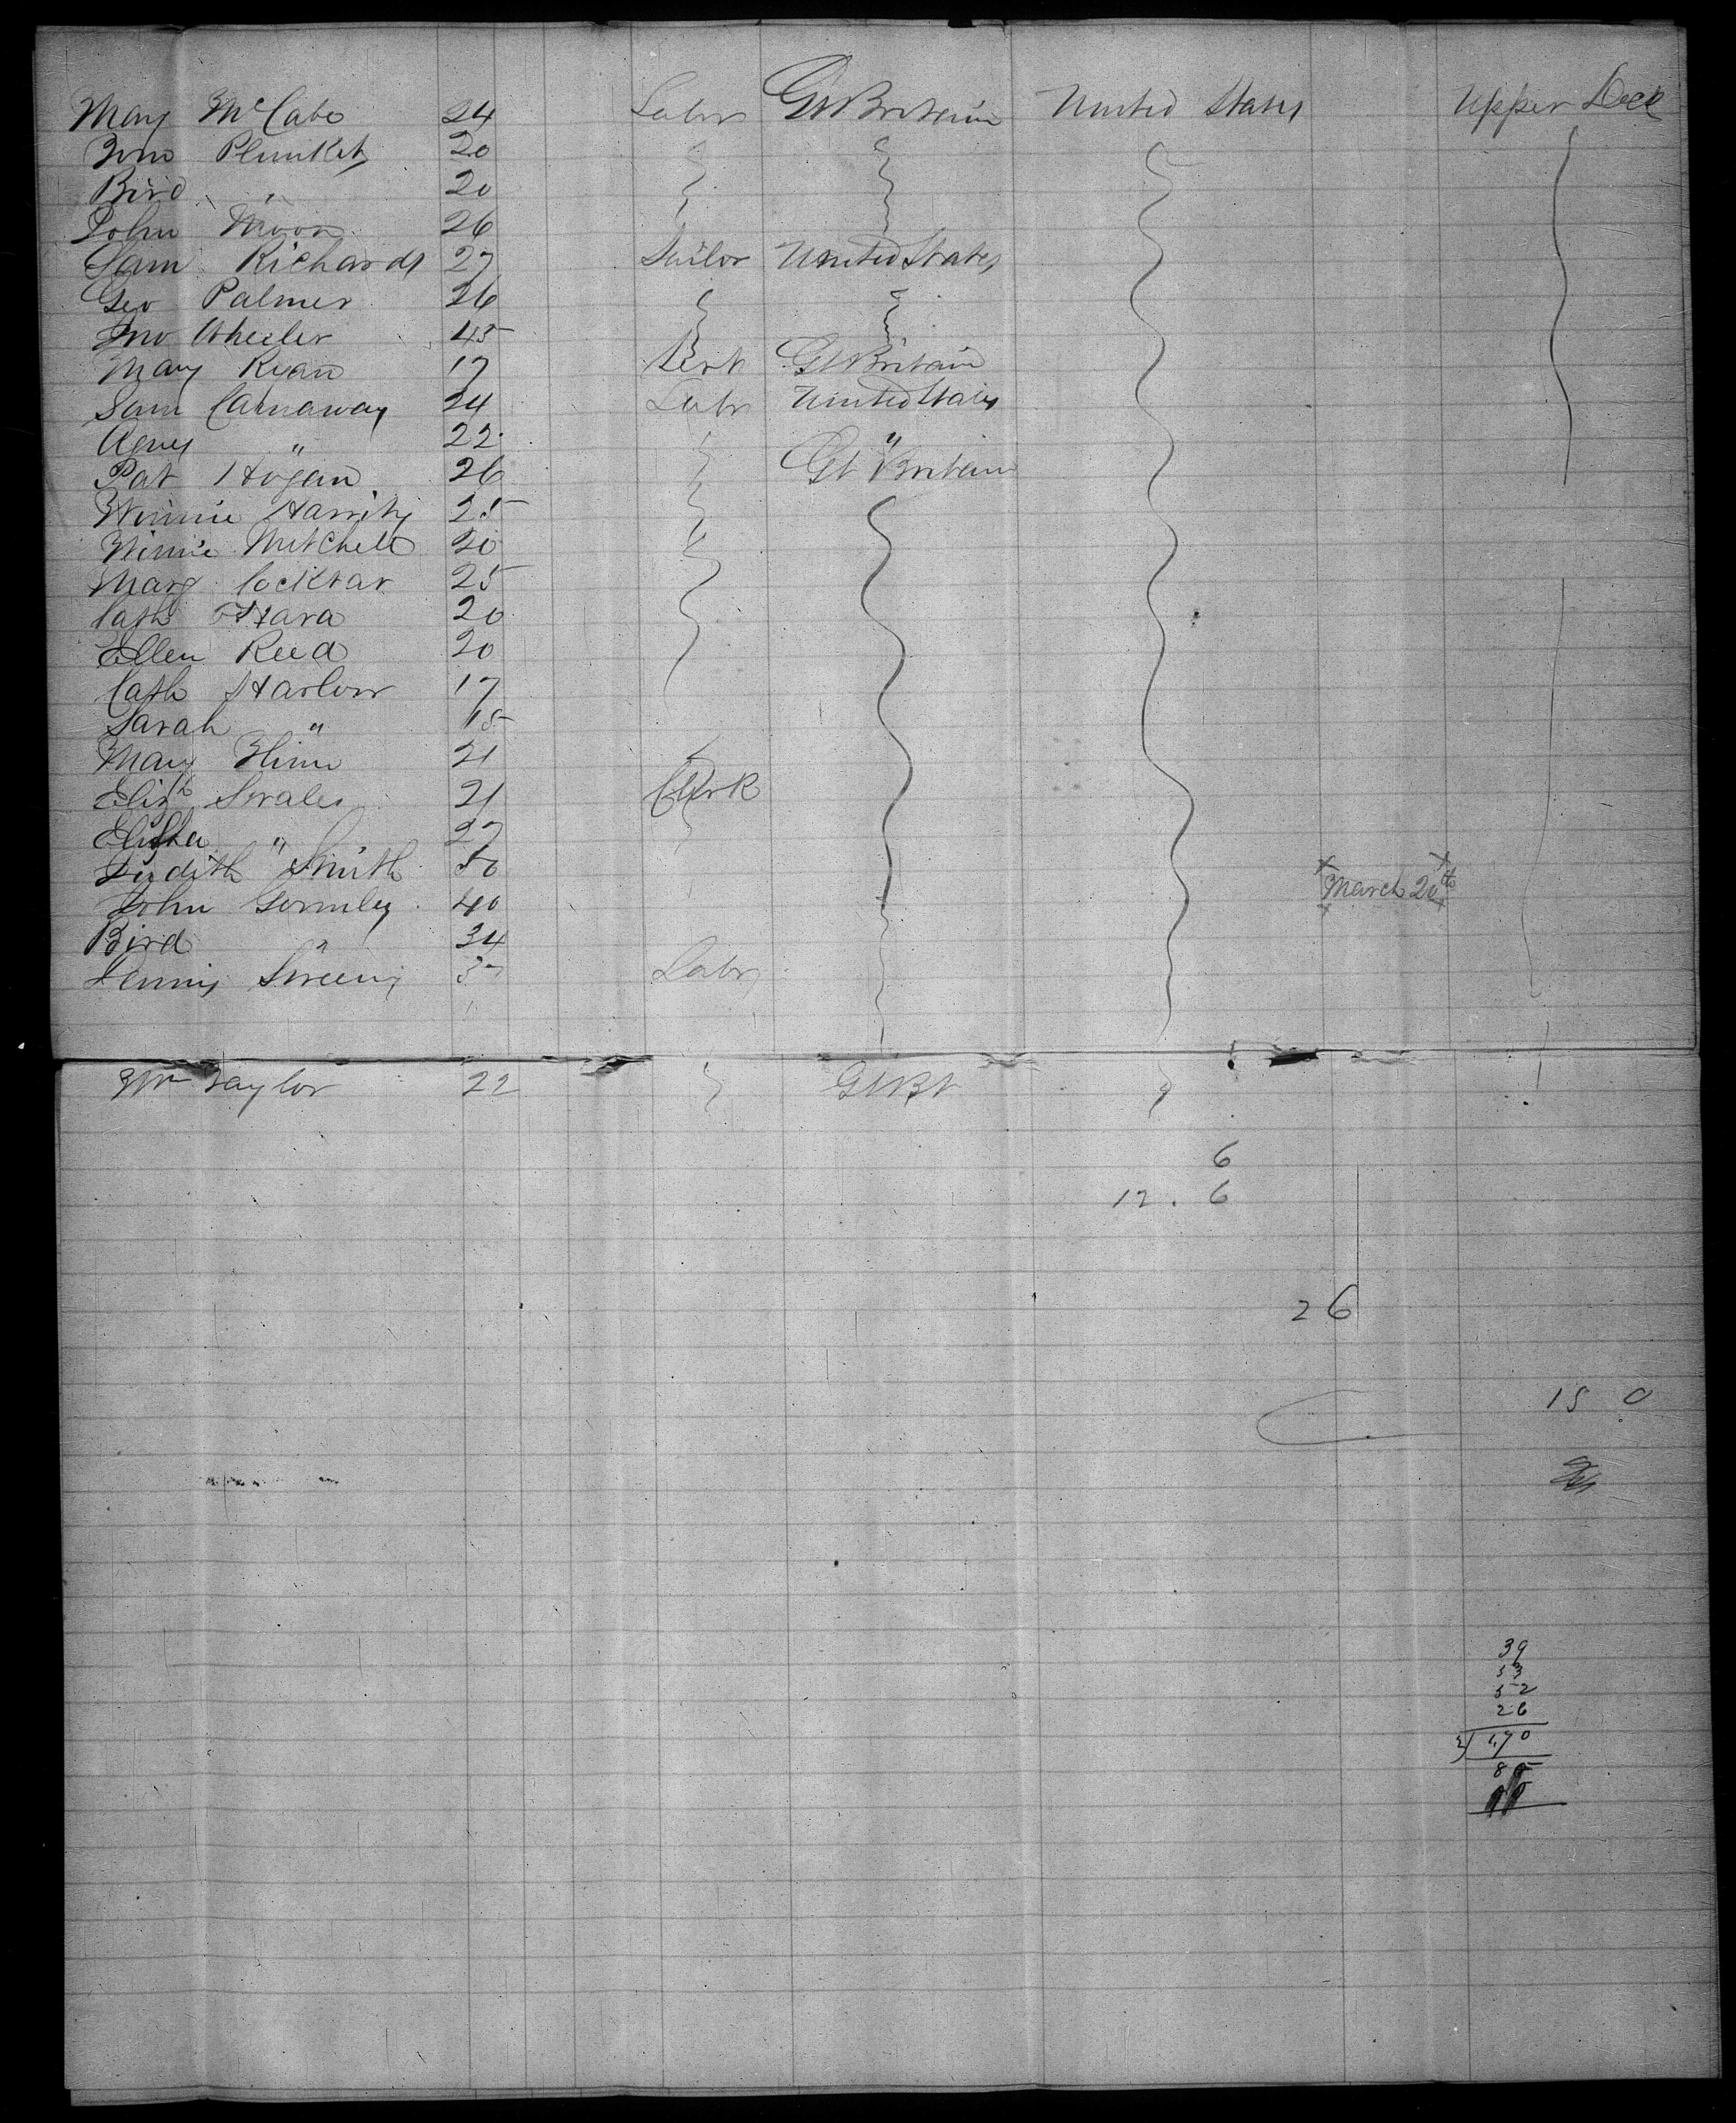 Mary McCabe 24 Labr Gt Britain United States Upper Deck
Plunket 20
Bird " 20
John Moon 26
Sam Richards 27 Sailor United States
Geo Palmer 26
Jno Wheeler 45
Mary Ryan 17 Gt Britain
Sam Carnaway 24 Labr United States
Agnes " 22 "
Pat Hogan 26 Gt Britain
Winnie Harrity 25
Winnie Mitchell 20
Marg Cockrar 25
Cath O'Hara 20
Ellen Reed 20
Cath Harlow 17
Sarah " 15
Mary Flinn 21
Elizh Swales 21 Clerk
Elisha " 27
Judith Smith 50 March 20th
John Gormley 40
Bird " 34
Dennis Sweeny Labr
Wm Taylor 22 Gt Bt
6
12 . 6
26
15 0
39
53
52
26
2) 170
85